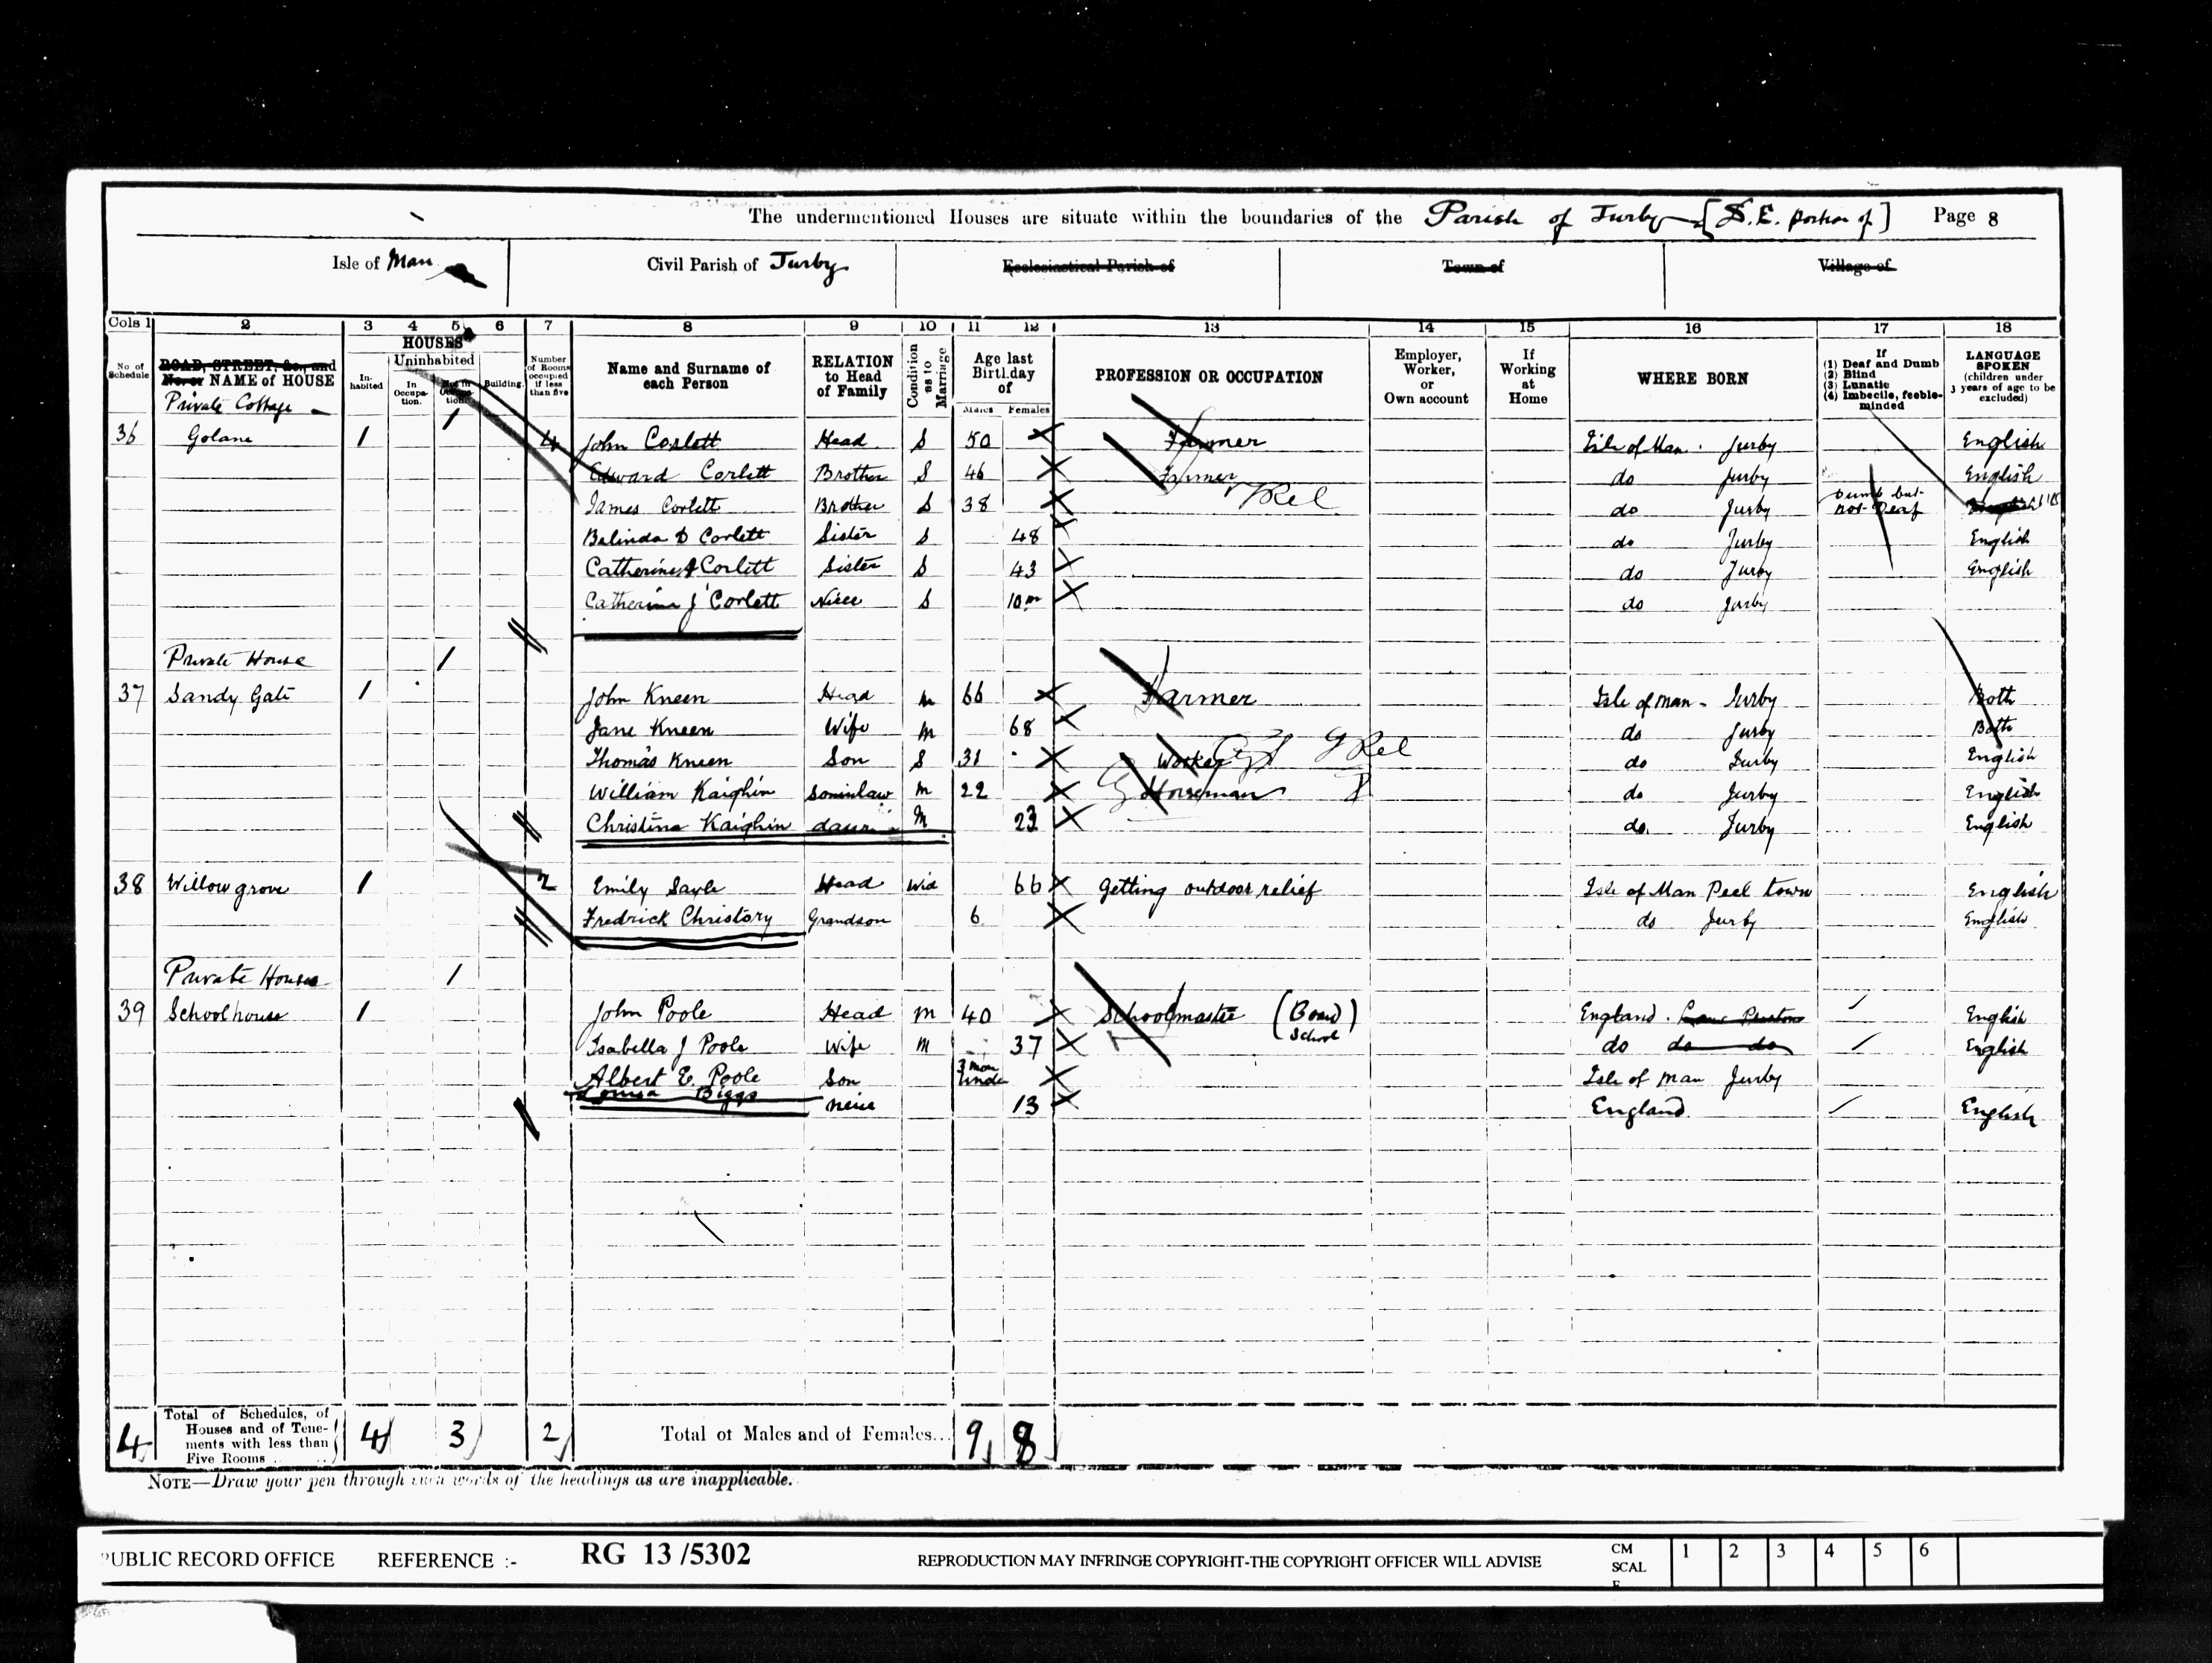 The undermentioned Houses are situate within the boundaries of the Parish of Jurby [S.E. portion of] Page 8
Isle of Man Civil Parish of Jurby Ecclesiastical Parish of Town of Village of
Cols 1 2 3 4 5 6 7 8 9 10 11 12 13 14 15 16 17 18
No of Schedule
ROAD, STREET, &c., and No. or NAME of HOUSE
HOUSES
In-habited
Uninhabited
In Occupa-tion.
Not in Occupa-tion.
Building.
Number of Rooms occupied if less than five
Name and Surname of each Person
RELATION to Head of Family
Condition as to Marriage
Age last Birthday of
Males Females
PROFESSION OR OCCUPATION
Employer, Worker, or Own account
If Working at Home
WHERE BORN
If (1) Deaf and Dumb (2) Blind (3) Lunatic (4) Imbecile, feeble-minded
LANGUAGE SPOKEN (children under 3 years of age to be excluded)
Private Cottage 1
36 Golane 1 4 John Corlett Head S 50 Farmer Isle of Man. Jurby English
Edward Corlett Brother S 46 Farmer do Jurby English
James Corlett Brother S 38 Rel do Jurby Dumb but not Deaf English
Belinda D Corlett Sister S 48 do Jurby English
Catherine A Corlett Sister S 43 do Jurby English
Catherine J Corlett Niece S 10m do Jurby
Private House 1
37 Sandy Gate 1 John Kneen Head M 66 Farmer Isle of Man - Jurby Both
Jane Kneen Wife M 68 do Jurby Both
Thomas Kneen Son S 31 Worker Rel do Jurby English
William Kaighin Soninlaw M 22 Horseman do Jurby English
Christina Kaighin daur M 23 do. Jurby English
38 Willow grove 1 2 Emily Sayle Head Wid 66 getting outdoor relief Isle of Man Peel town English
Fredrick Christory Grandson 6 do Jurby English
Private House 1
39 Schoolhouse 1 John Poole Head M 40 Schoolmaster (Board School) England. Lanc Preston English
Isabella J Poole Wife M 37 do do do English
Albert E. Poole Son 3 mon under Isle of Man Jurby
Louisa Biggs neice 13 England English
4 Total of Schedules, of Houses and of Tene-ments with less than Five Rooms 4 3 2 Total of Males and of Females... 9 8
NOTE—Draw your pen through such words of the headings as are inapplicable.
PUBLIC RECORD OFFICE REFERENCE :- RG 13/5302 REPRODUCTION MAY INFRINGE COPYRIGHT-THE COPYRIGHT OFFICER WILL ADVISE CM SCALE 1 2 3 4 5 6